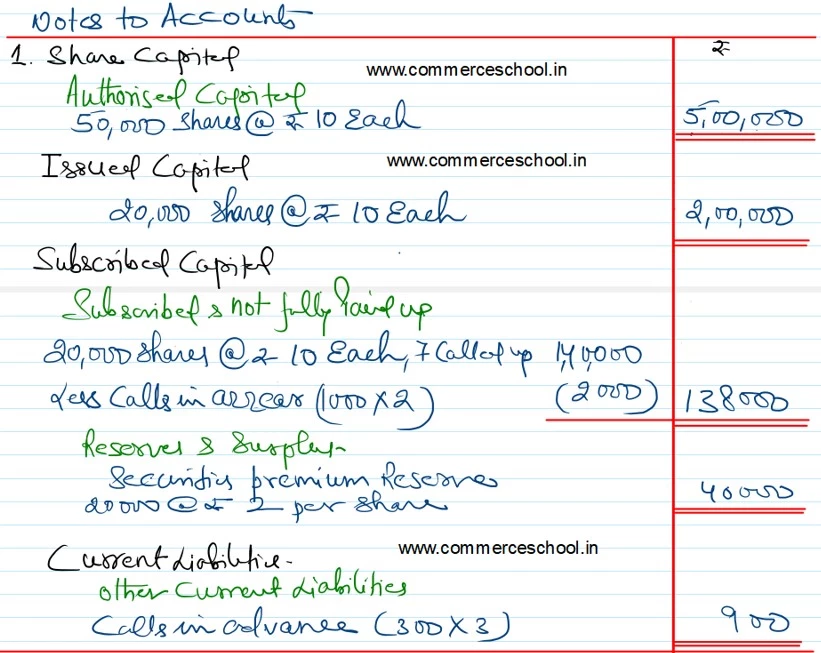 Notes to Accounts
1. Share Capital ₹
www.commerceschool.in
Authorised Capital
50,000 Shares @ ₹ 10 Each 5,00,000
Issued Capital www.commerceschool.in
20,000 Shares @ ₹ 10 Each 2,00,000
Subscribed Capital
Subscribed & not fully Paid up
20,000 Shares @ ₹ 10 Each, 7 Called up 1,40,000
Less Calls in arrear (1000 X 2) (2000) 138000
Reserves & Surplus-
Securities premium Reserve
20000 @ ₹ 2 per share 40000
Current Liabilities- www.commerceschool.in
Other Current Liabilities
Calls in advance (300 X 3) 900